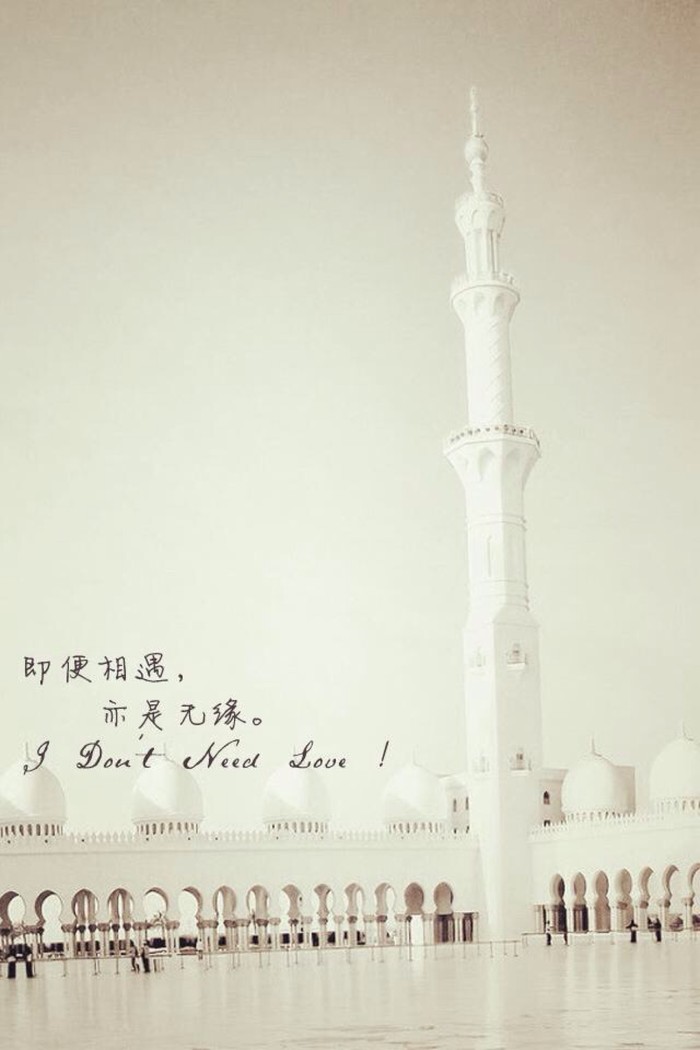 即便相遇，
亦是无缘。
I Don't Need Love !